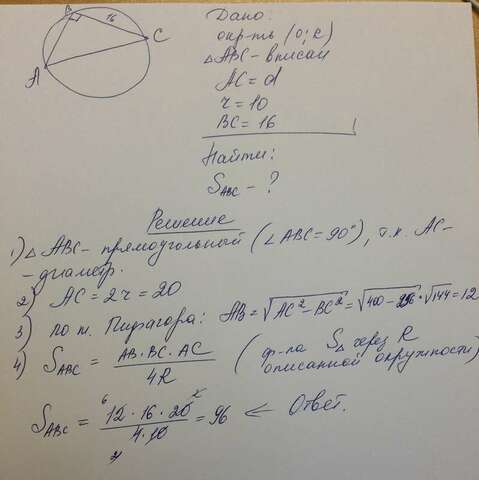 B
16
C
A
Дано:
окр-ть (O; r)
△ABC - вписан
AC = d
r = 10
BC = 16
Найти:
S_ABC - ?
Решение
1) △ ABC - прямоугольный (∠ABC = 90°), т.к. AC -
- диаметр.
2) AC = 2r = 20
3) по т. Пифагора: AB = √(AC² - BC²) = √(400 - 256) = √144 = 12
4) S_ABC = (AB · BC · AC) / 4R (ф-ла S_△ через R
описанной окружности)
S_ABC = (12 · 16 · 20) / (4 · 10) = 96 ⟵ Ответ.